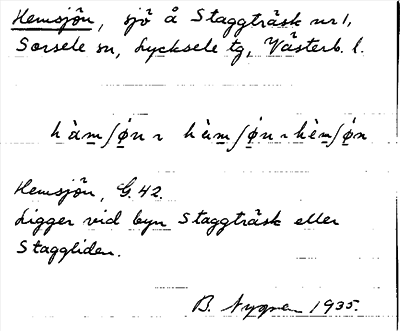 Hemsjön, sjö å Staggträsk nr 1,
Sorsele sn, Lycksele tg, Västerb. l.
hàm∫øn ~ hàm∫øn ~ hèm∫øn
Hemsjön, G. 42.
Ligger vid byn Staggträsk eller
Staggliden.
B. Nygren 1935.